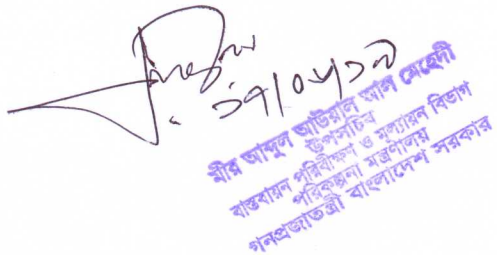 মীর আব্দুল আউয়াল আল মেহেদী
উপসচিব
বাস্তবায়ন পরিবীক্ষণ ও মূল্যায়ন বিভাগ
পরিকল্পনা মন্ত্রণালয়
গনপ্রজাতন্ত্রী বাংলাদেশ সরকার